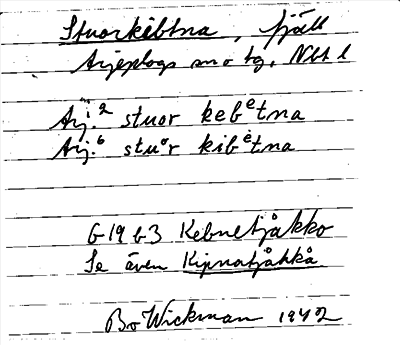 Stuorkebtna, fjäll
Arjeplogs sn o tg, Nbt l
Arj.2 stuor kebetna
Arj.6 stuor kibetna
G 19 b 3 Kebnetjåkko
Se även Kipnatjåkkå
Bo Wickman 1942